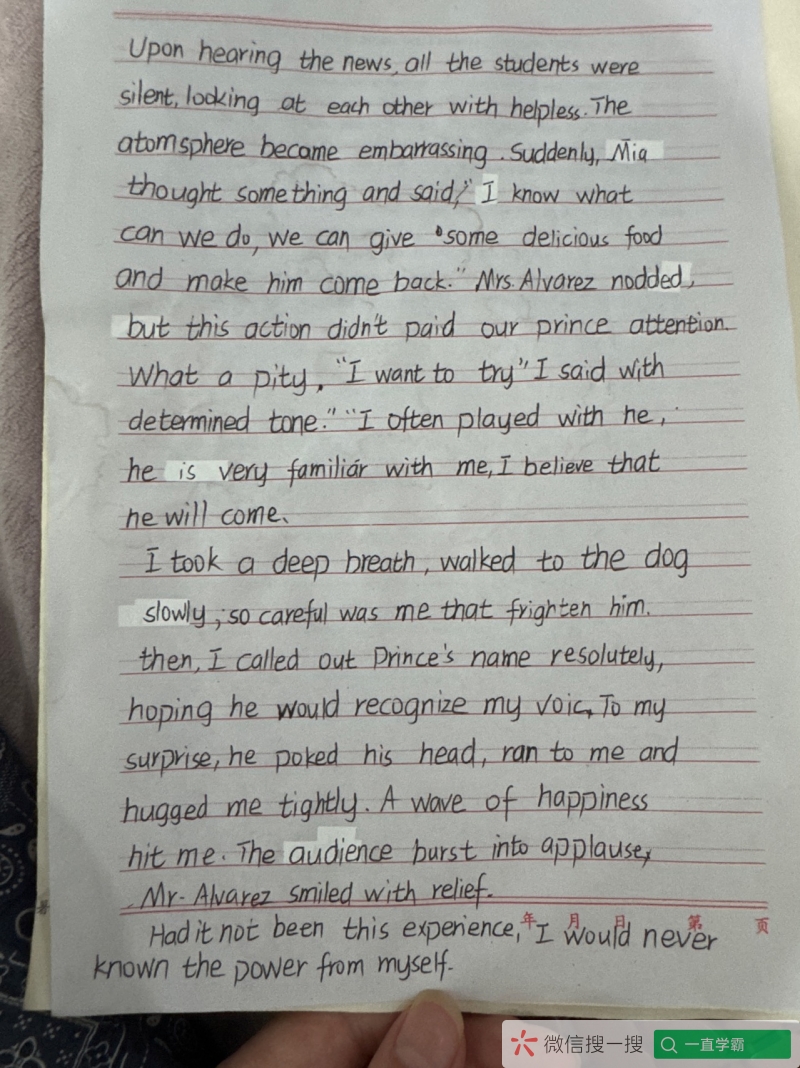 Upon hearing the news, all the students were
silent, looking at each other with helpless. The
atomsphere became embarrassing. Suddenly, Mia
thought something and said," I know what
can we do, we can give some delicious food
and make him come back." Mrs. Alvarez nodded,
but this action didn't paid our prince attention.
What a pity, "I want to try" I said with
determined tone." "I often played with he,
he is very familiar with me, I believe that
he will come.
I took a deep breath, walked to the dog
slowly, so careful was me that frighten him.
then, I called out Prince's name resolutely,
hoping he would recognize my voic, To my
surprise, he poked his head, ran to me and
hugged me tightly. A wave of happiness
hit me. The audience burst into applause,
Mr. Alvarez smiled with relief.
年 月 日 第 页
Had it not been this experience, I would never
known the power from myself.
微信搜一搜 一直学霸